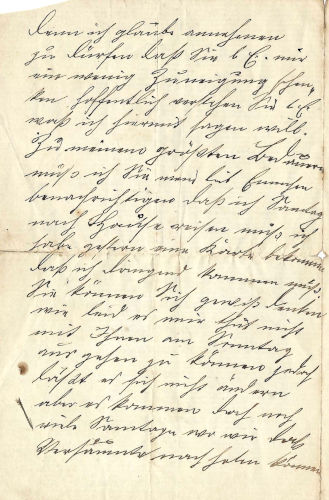 denn ich glaube annehmen
zu dürfen daß Sie l. E. mir
ein wenig Zuneigung schen-
ken, hoffentlich verstehen Sie l. E.
was ich hiermit sagen will.
Zu meinem größten Bedauern
muß ich Sie mein lb Emmchen
benachrichtigen daß ich Sonntag
nach Hause reisen muß ich
habe gestern eine Karte bekommen
daß ich dringend kommen muß.
Sie können Sich gewiß denken
wie leid es mir thut nicht
mit Ihnen am Sonntag
aus gehen zu können jedoch
läßt es sich nicht ändern
aber es kommen doch noch
viele Sonntage wo wir das
Versäumte nach holen können